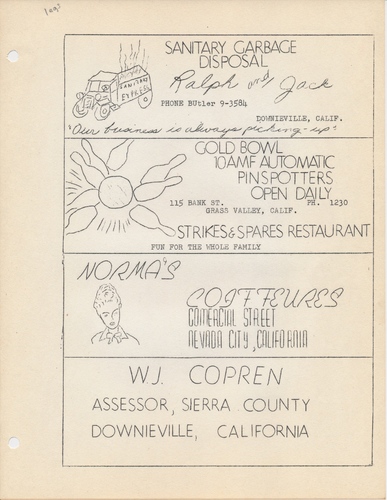 SANITARY GARBAGE
DISPOSAL
Ralph and Jack
SANITARY
EXPRESS
PHONE BUtler 9-3584
DOWNIEVILLE, CALIF.
"Our business is always picking-up"
GOLD BOWL
10 AMF AUTOMATIC
PINSPOTTERS
OPEN DAILY
115 BANK ST. PH. 1230
GRASS VALLEY, CALIF.
STRIKES & SPARES RESTAURANT
FUN FOR THE WHOLE FAMILY
NORMA'S
COIFFEURES
COMERCIAL STREET
NEVADA CITY, CALIFORNIA
W.J. COPREN
ASSESSOR, SIERRA COUNTY
DOWNIEVILLE, CALIFORNIA